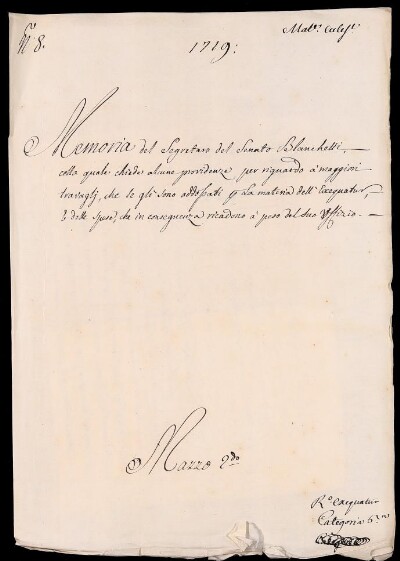 N.° 8.
1719:
Memoria del Segretaro del Senato Blanchetti,
colla quale chiede alcune providenze per riguardo à maggiori
travaglj, che se gli sono addossati p la materia dell'Exequatur,
e delle spese, che in conseguenza ricadono à peso del suo Uffizio.
Mazzo 2.do
R.o Exequatur
Categoria